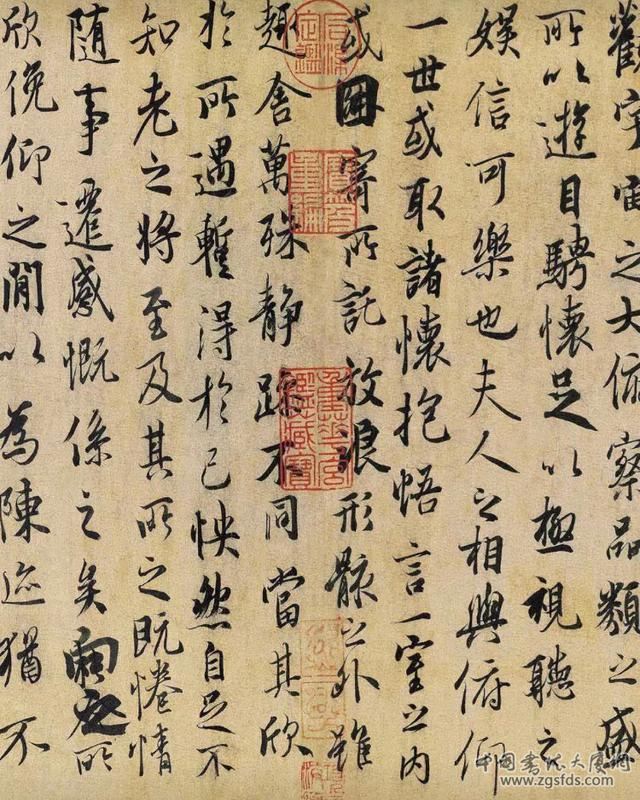 觀宇宙之大俯察品類之盛
所以遊目騁懷足以極視聽之
娛信可樂也夫人之相與俯仰
一世或取諸懷抱悟言一室之內
或因寄所託放浪形骸之外雖
趣舍萬殊靜躁不同當其欣
於所遇暫得於己怏然自足不
知老之將至及其所之既惓情
隨事遷感慨係之矣向之所
欣俛仰之閒以為陳迹猶不
石渠定鑑
寶笈重編
重華宮鑑藏寶
中国书法大厦网
www.zgsfds.com